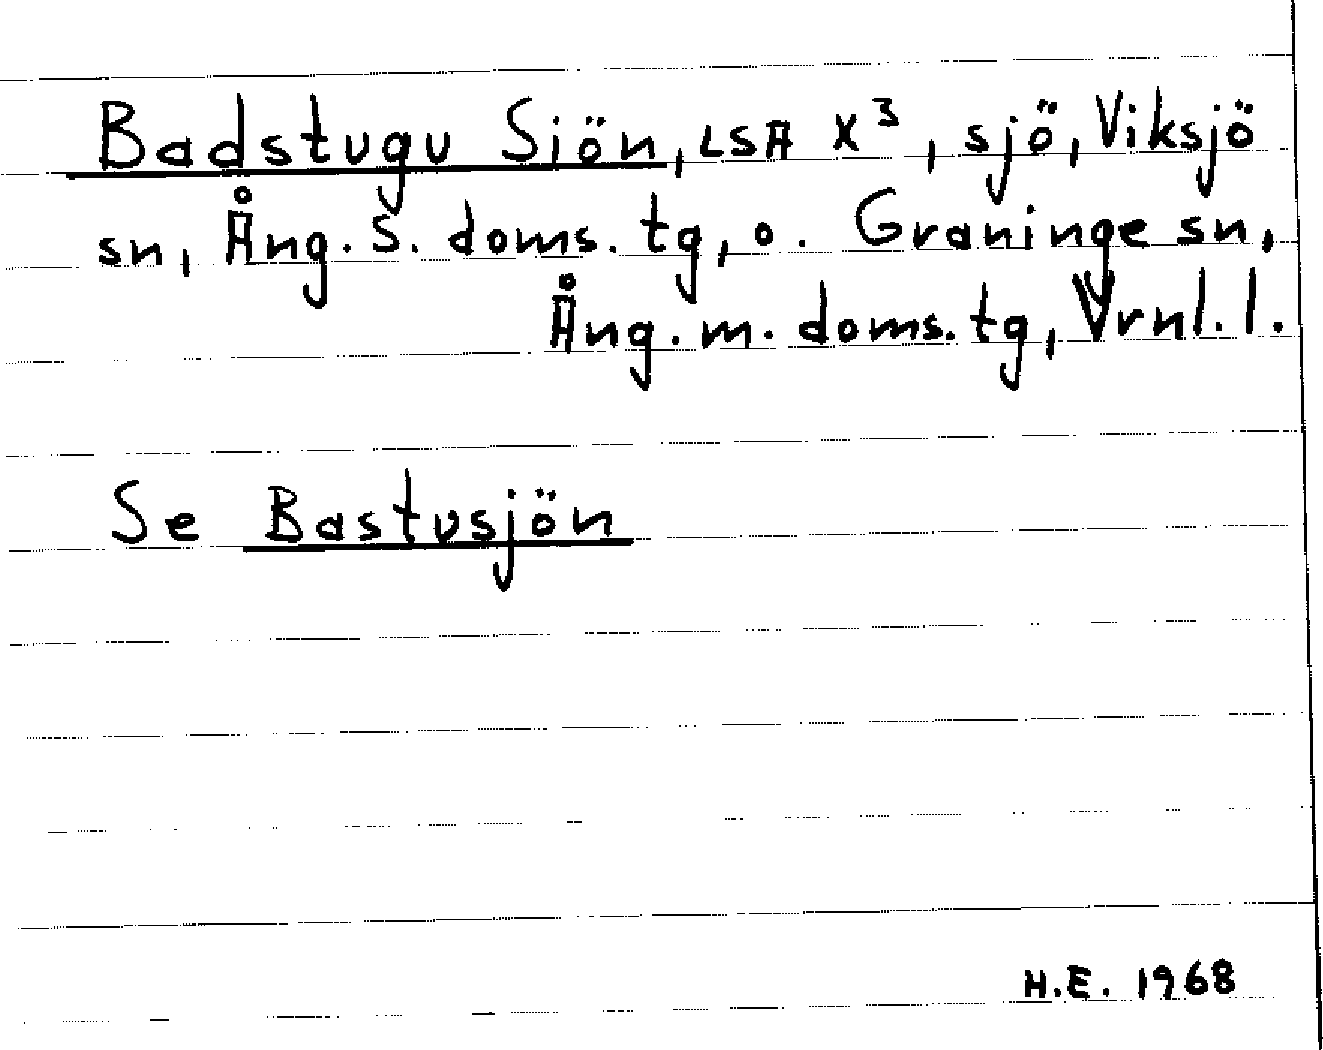 Badstugu Sjön, LSA X³, sjö, Viksjö
sn, Ång. s. doms. tg, o. Graninge sn,
Ång. m. doms. tg, Vrnl. l.
Se Bastusjön
H.E. 1968